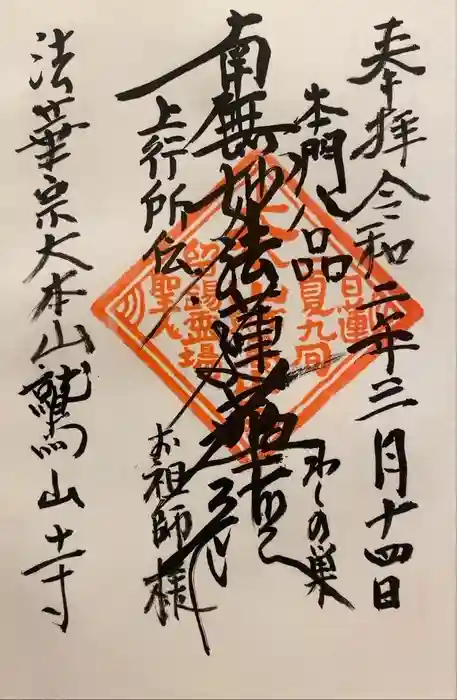 奉拝 令和二年三月十四日
本門八品
わしの巣
南無妙法蓮華経
上行所伝
お祖師様
法華宗大本山鷲山寺
日蓮
霊場